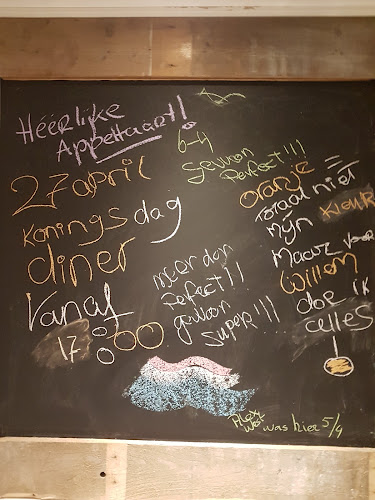 Héérlijke
Appeltaart!
27 april
Koningsdag
diner
Vanaf
17:00
6-4
gewoon
Perfect!!!
meer dan
Perfect!!
gewoon
super!!!
oranje =
totaal niet
mijn kleur
maar voor
Willem
doe ik
alles
!
Alex
was hier 5/4